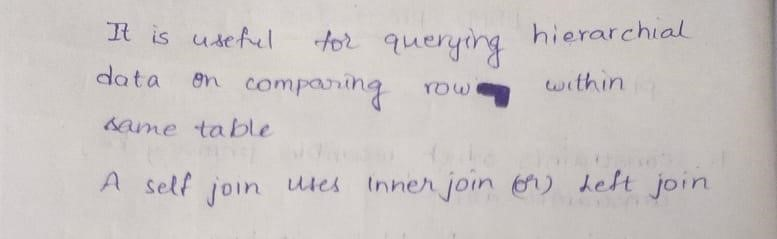 It is useful for querying hierarchial
data or comparing row within
same table
A self join uses inner join (or) Left join